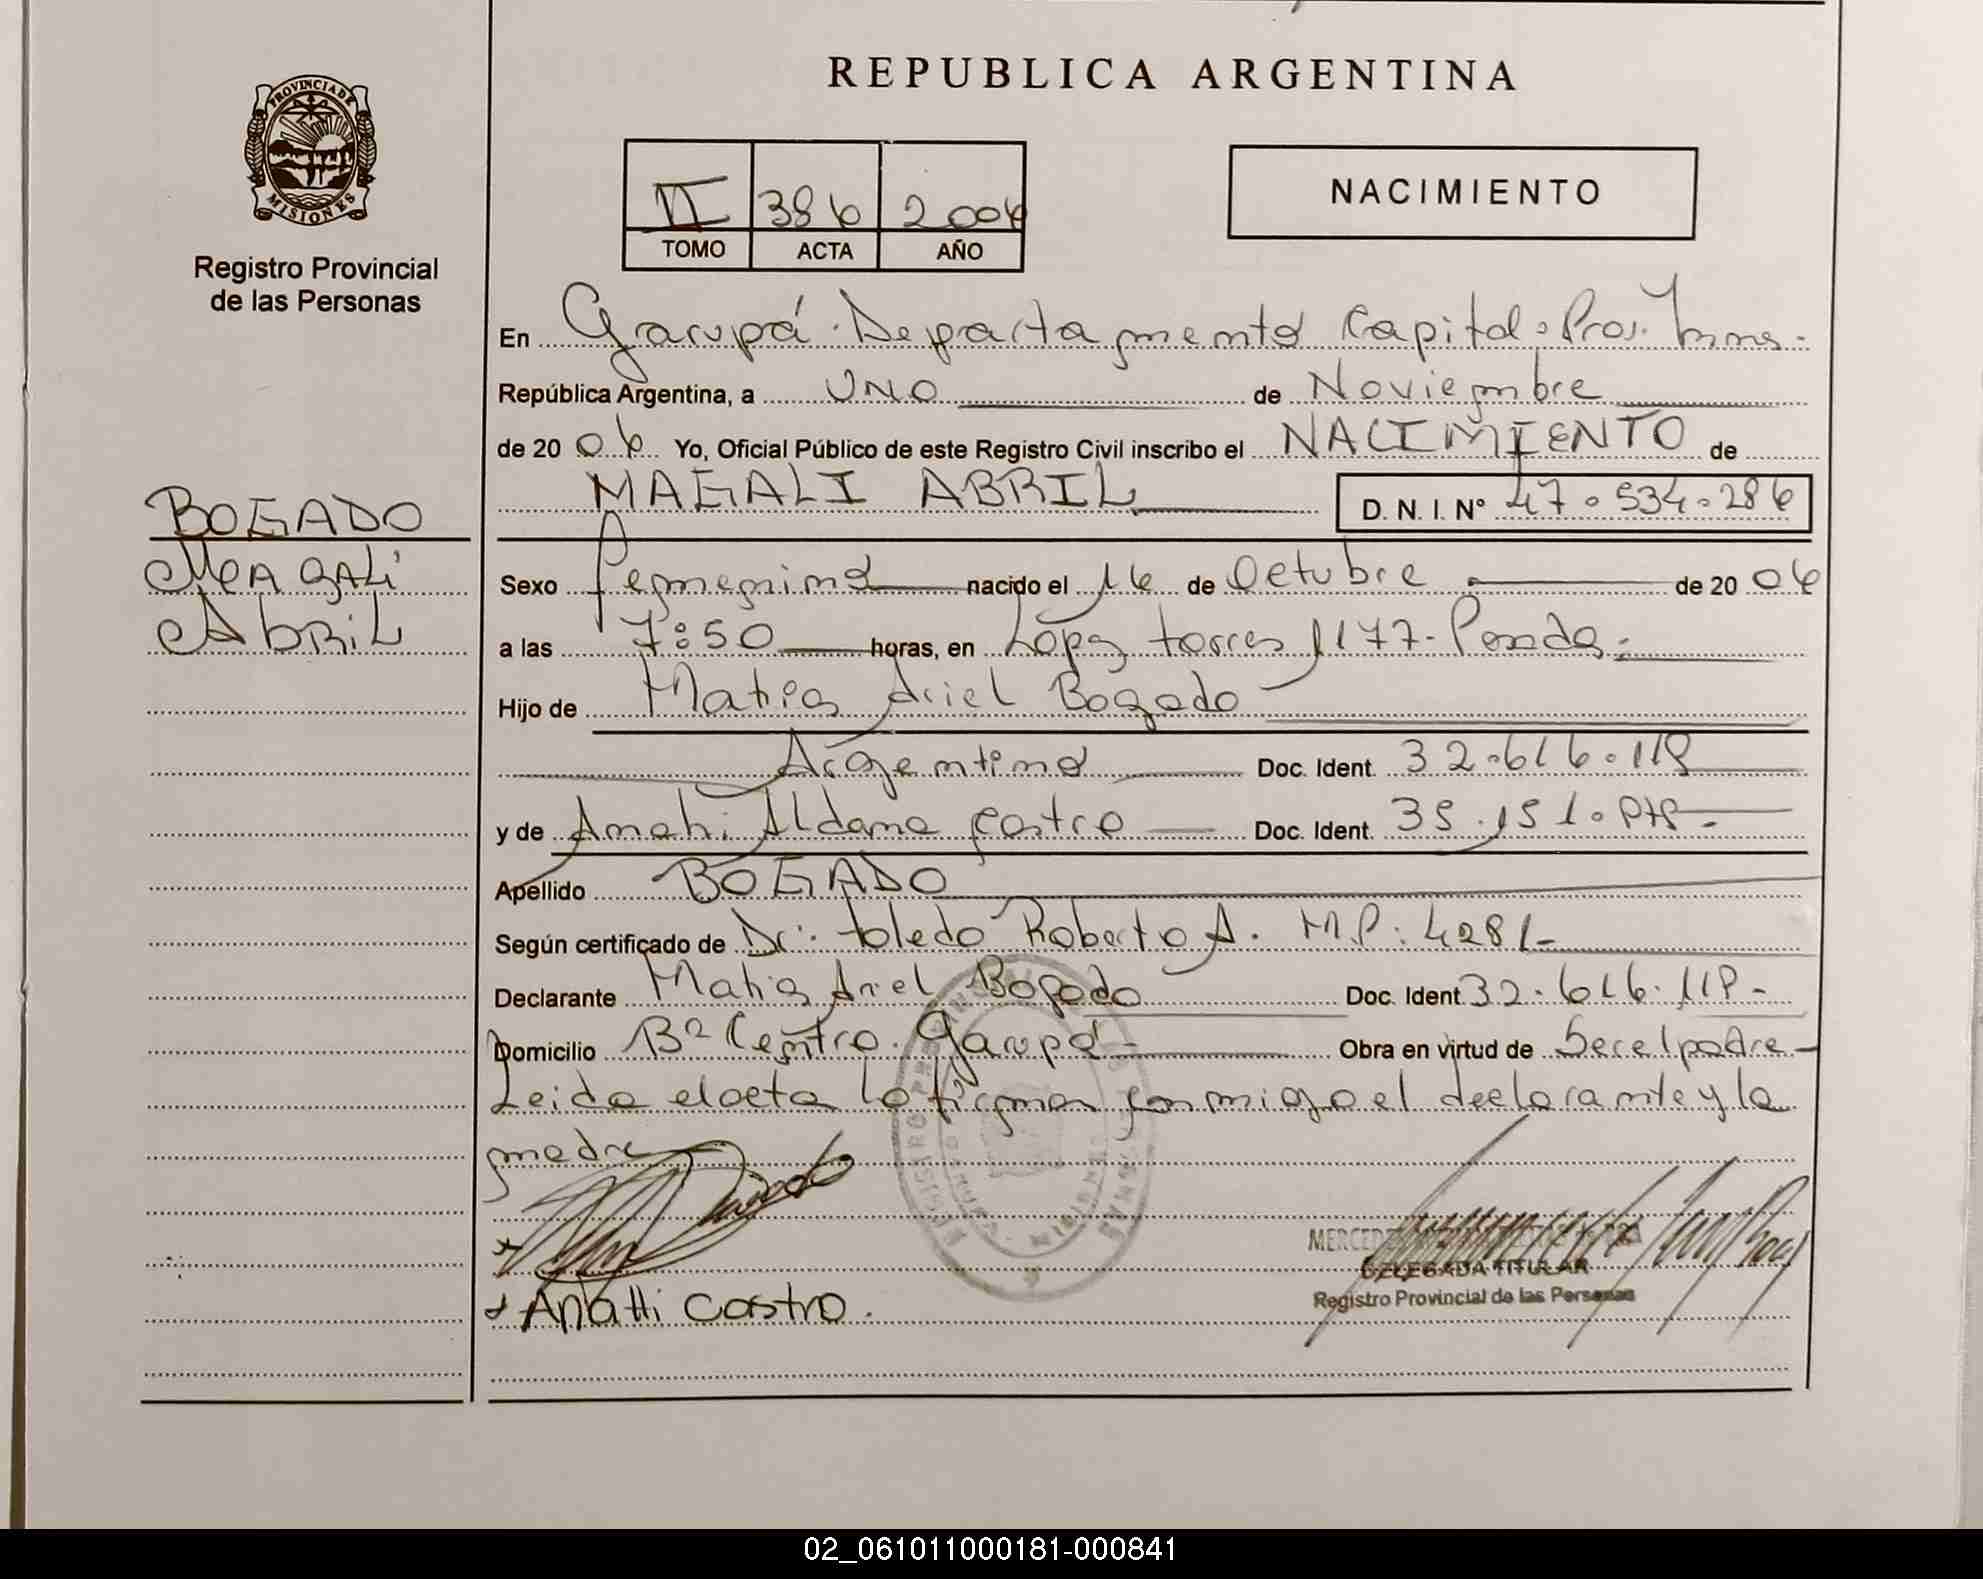 PROVINCIA DE
MISIONES
Registro Provincial
de las Personas
BOGADO
Magalí
Abril
REPUBLICA ARGENTINA
II 386 2006
TOMO ACTA AÑO
NACIMIENTO
En Garupá Departamento Capital Prov. Mnes.
República Argentina, a UNO de Noviembre
de 20 06 Yo, Oficial Público de este Registro Civil inscribo el NACIMIENTO de
MAGALI ABRIL D. N. I. N° 47.534.286
Sexo femenino nacido el 16 de Octubre de 20 06
a las 7:50 horas, en Lopez torres 1177- Posadas
Hijo de Matias Ariel Bogado
Argentino Doc. Ident. 32.616.118
y de Anahi Aldana Castro Doc. Ident. 35.151.
Apellido BOGADO
Según certificado de Dr: toledo Roberto A. M.P: 4281-
Declarante Matias Ariel Bogado Doc. Ident 32.616.118-
Domicilio B° Centro. Garupá- Obra en virtud de Ser el padre-
Leida el acta la firman conmigo el declarante y la
madre
Anahi Castro.
DELEGADA TITULAR
Registro Provincial de las Personas
02_061011000181-000841